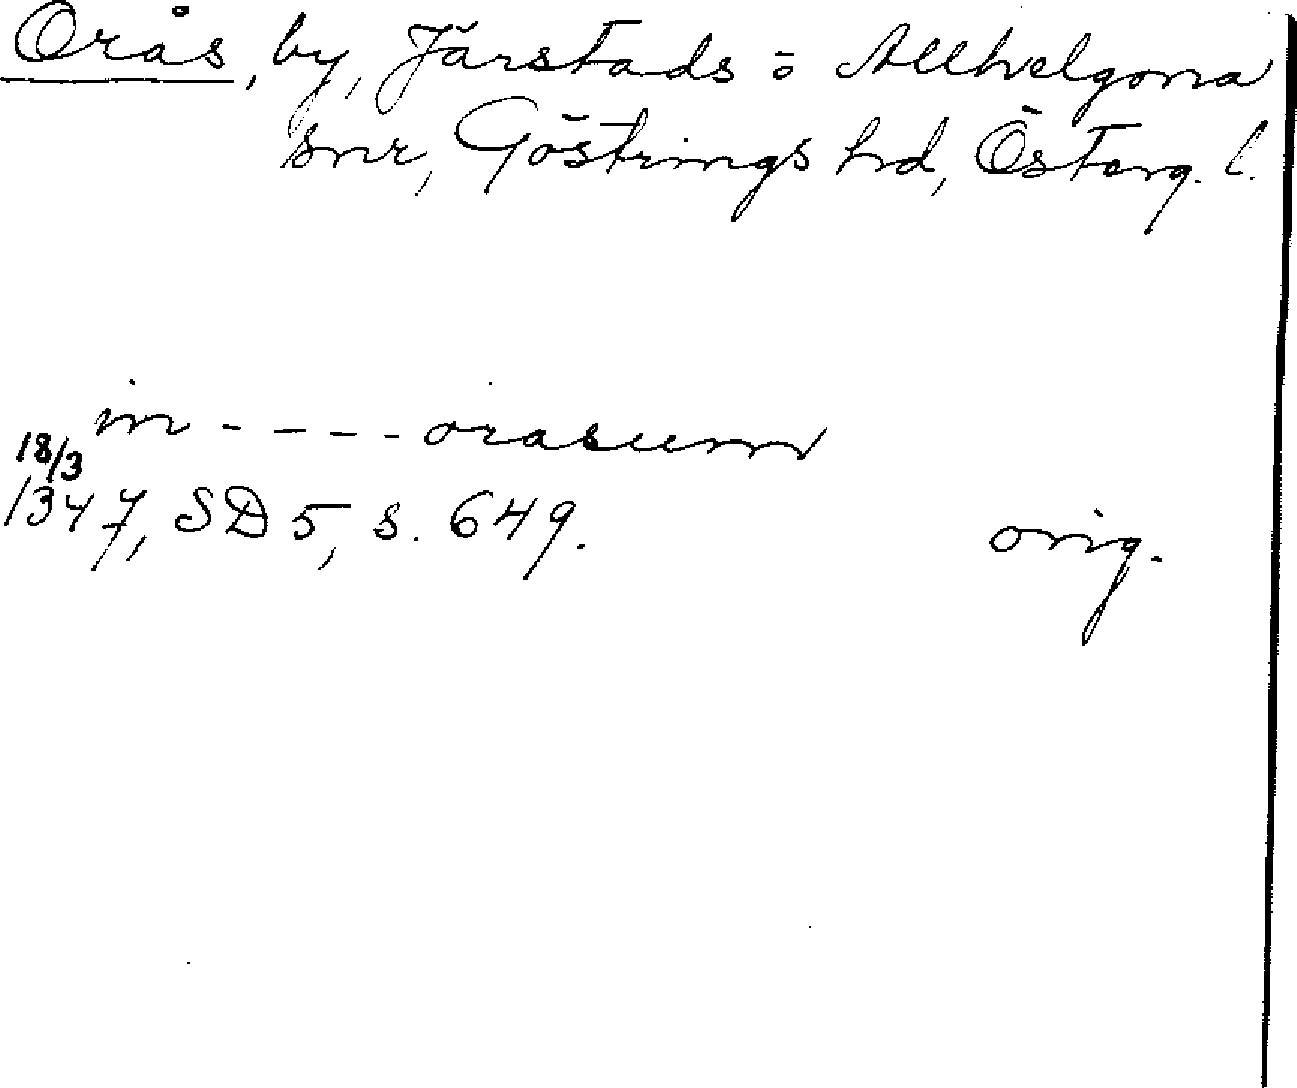 Orås, by, Järstads o Allhelgona
snr, Göstrings hd, Österg. l.
in - - - - orasum
18/3
1347, SD 5, s. 649.
orig.